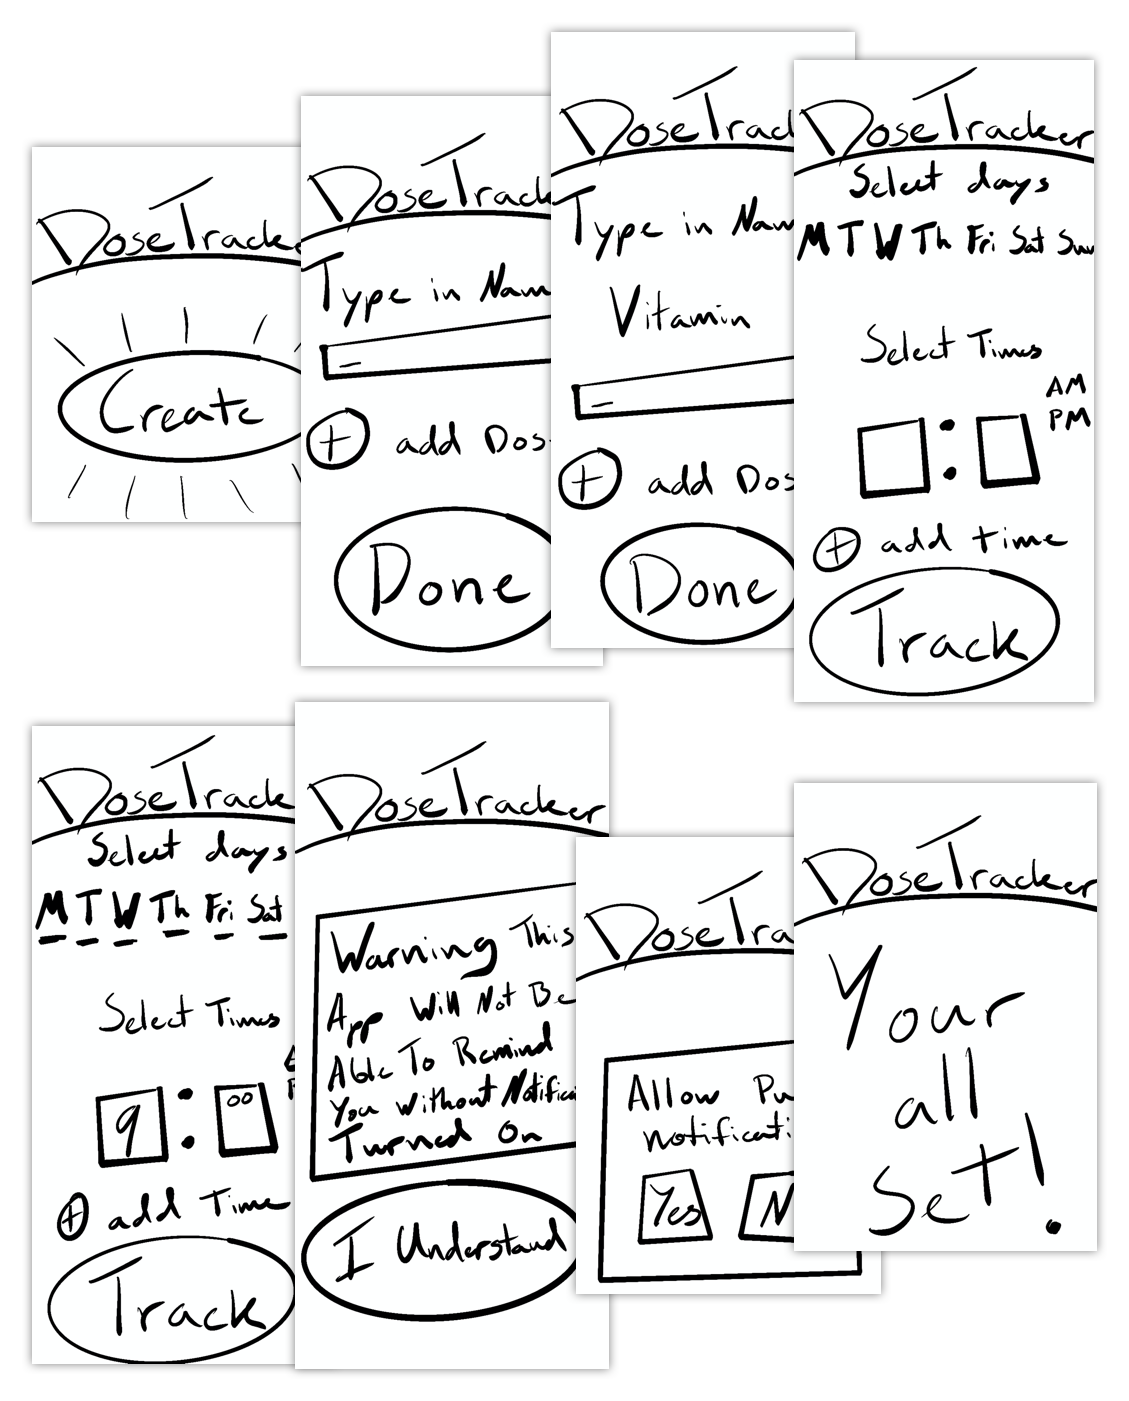 DoseTracke
Create
DoseTrack
Type in Nam
add Dos
Done
DoseTrack
Type in Nam
Vitamin
add Dos
Done
DoseTracker
Select days
M T W Th Fri Sat Sun
Select Times
AM
PM
:
add time
Track
DoseTrack
Select days
M T W Th Fri Sat
Select Times
9 : 00
add Time
Track
DoseTracker
Warning This
App Will Not Be
Able To Remind
You Without Notifica
Turned On
I Understand
DoseTra
Allow Pu
notificati
Yes N
DoseTracker
Your
all
Set!